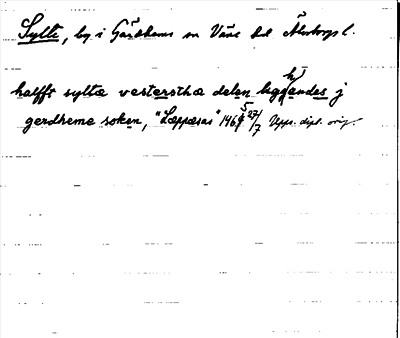 Sylte, by i Gärdhems sn Väne hd Älvsborgs l.
halfft syltæ vestersthæ delen liggendes j
gerdheme soken, "Læppæsas" 1465 27/7 Upps. dipl. orig.